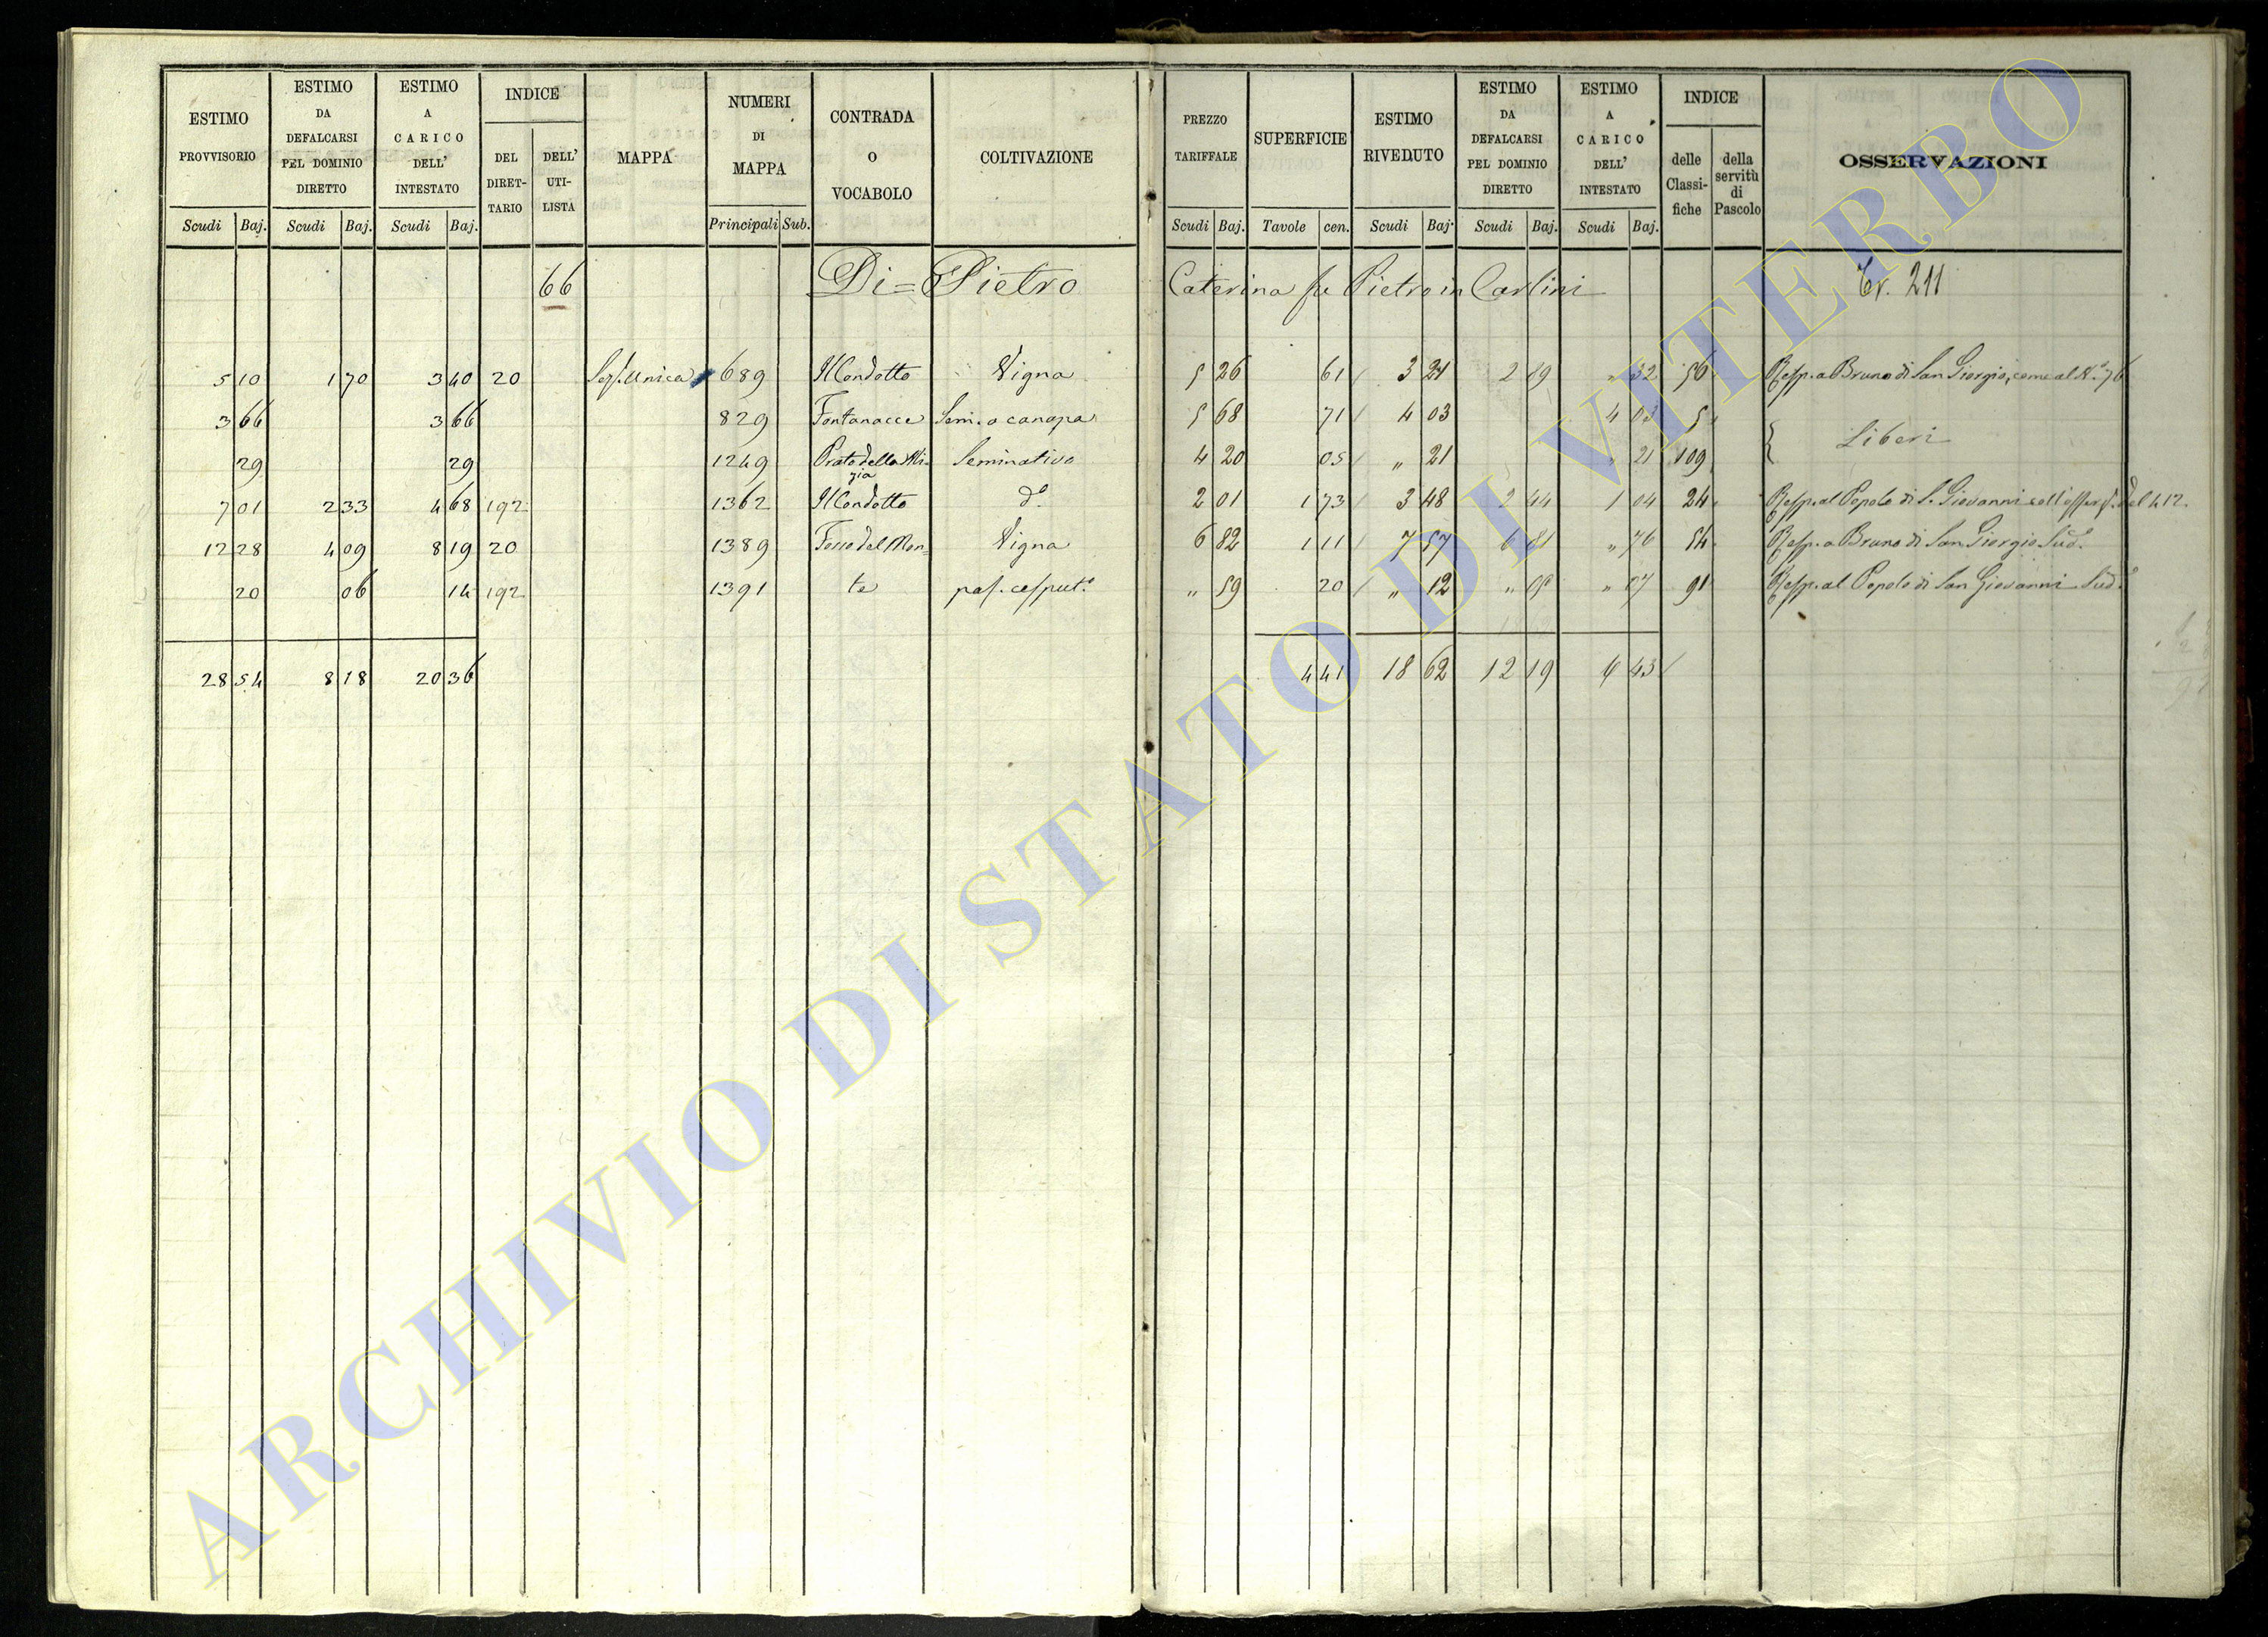 ESTIMO PROVVISORIO Scudi Baj.
ESTIMO DA DEFALCARSI PEL DOMINIO DIRETTO Scudi Baj.
ESTIMO A CARICO DELL' INTESTATO Scudi Baj.
INDICE DEL DIRETTARIO DELL' UTILISTA
MAPPA
NUMERI DI MAPPA Principali Sub.
CONTRADA O VOCABOLO
COLTIVAZIONE
PREZZO TARIFFALE Scudi Baj.
SUPERFICIE Tavole cen.
ESTIMO RIVEDUTO Scudi Baj.
ESTIMO DA DEFALCARSI PEL DOMINIO DIRETTO Scudi Baj.
ESTIMO A CARICO DELL' INTESTATO Scudi Baj.
INDICE delle Classifiche della servitù di Pascolo
OSSERVAZIONI
66 Di=Pietro Caterina fu Pietro in Carlini Tr. 211
5 10 1 70 3 40 20 Sez. Unica 689 Il Condotto Vigna 5 26 61 3 21 2 89 " 32 56 Resp. a Bruno di San Giorgio, come al N.° 76
3 66 3 66 829 Fontanacce Sem. a canapa 5 68 71 4 03 4 03 5
29 29 1249 Prato della Mizia Seminativo 4 20 05 " 21 " 21 109 Liberi
7 01 2 33 4 68 192 1362 Il Condotto d.° 2 01 1 73 3 48 2 44 1 04 24 Resp. al Popolo di S. Giovanni coll'osser. del 412.
12 28 4 09 8 19 20 1389 Fosso del Mon= Vigna 6 82 1 11 7 57 6 81 " 76 54 Resp. a Bruno di San Giorgio Sud.°
20 06 14 192 1391 te pas. cesput.° " 59 20 " 12 " 05 " 07 91 Resp. al Popolo di San Giovanni Sud.°
28 54 8 18 20 36 4 41 18 62 12 19 6 43
ARCHIVIO DI STATO DI VITERBO